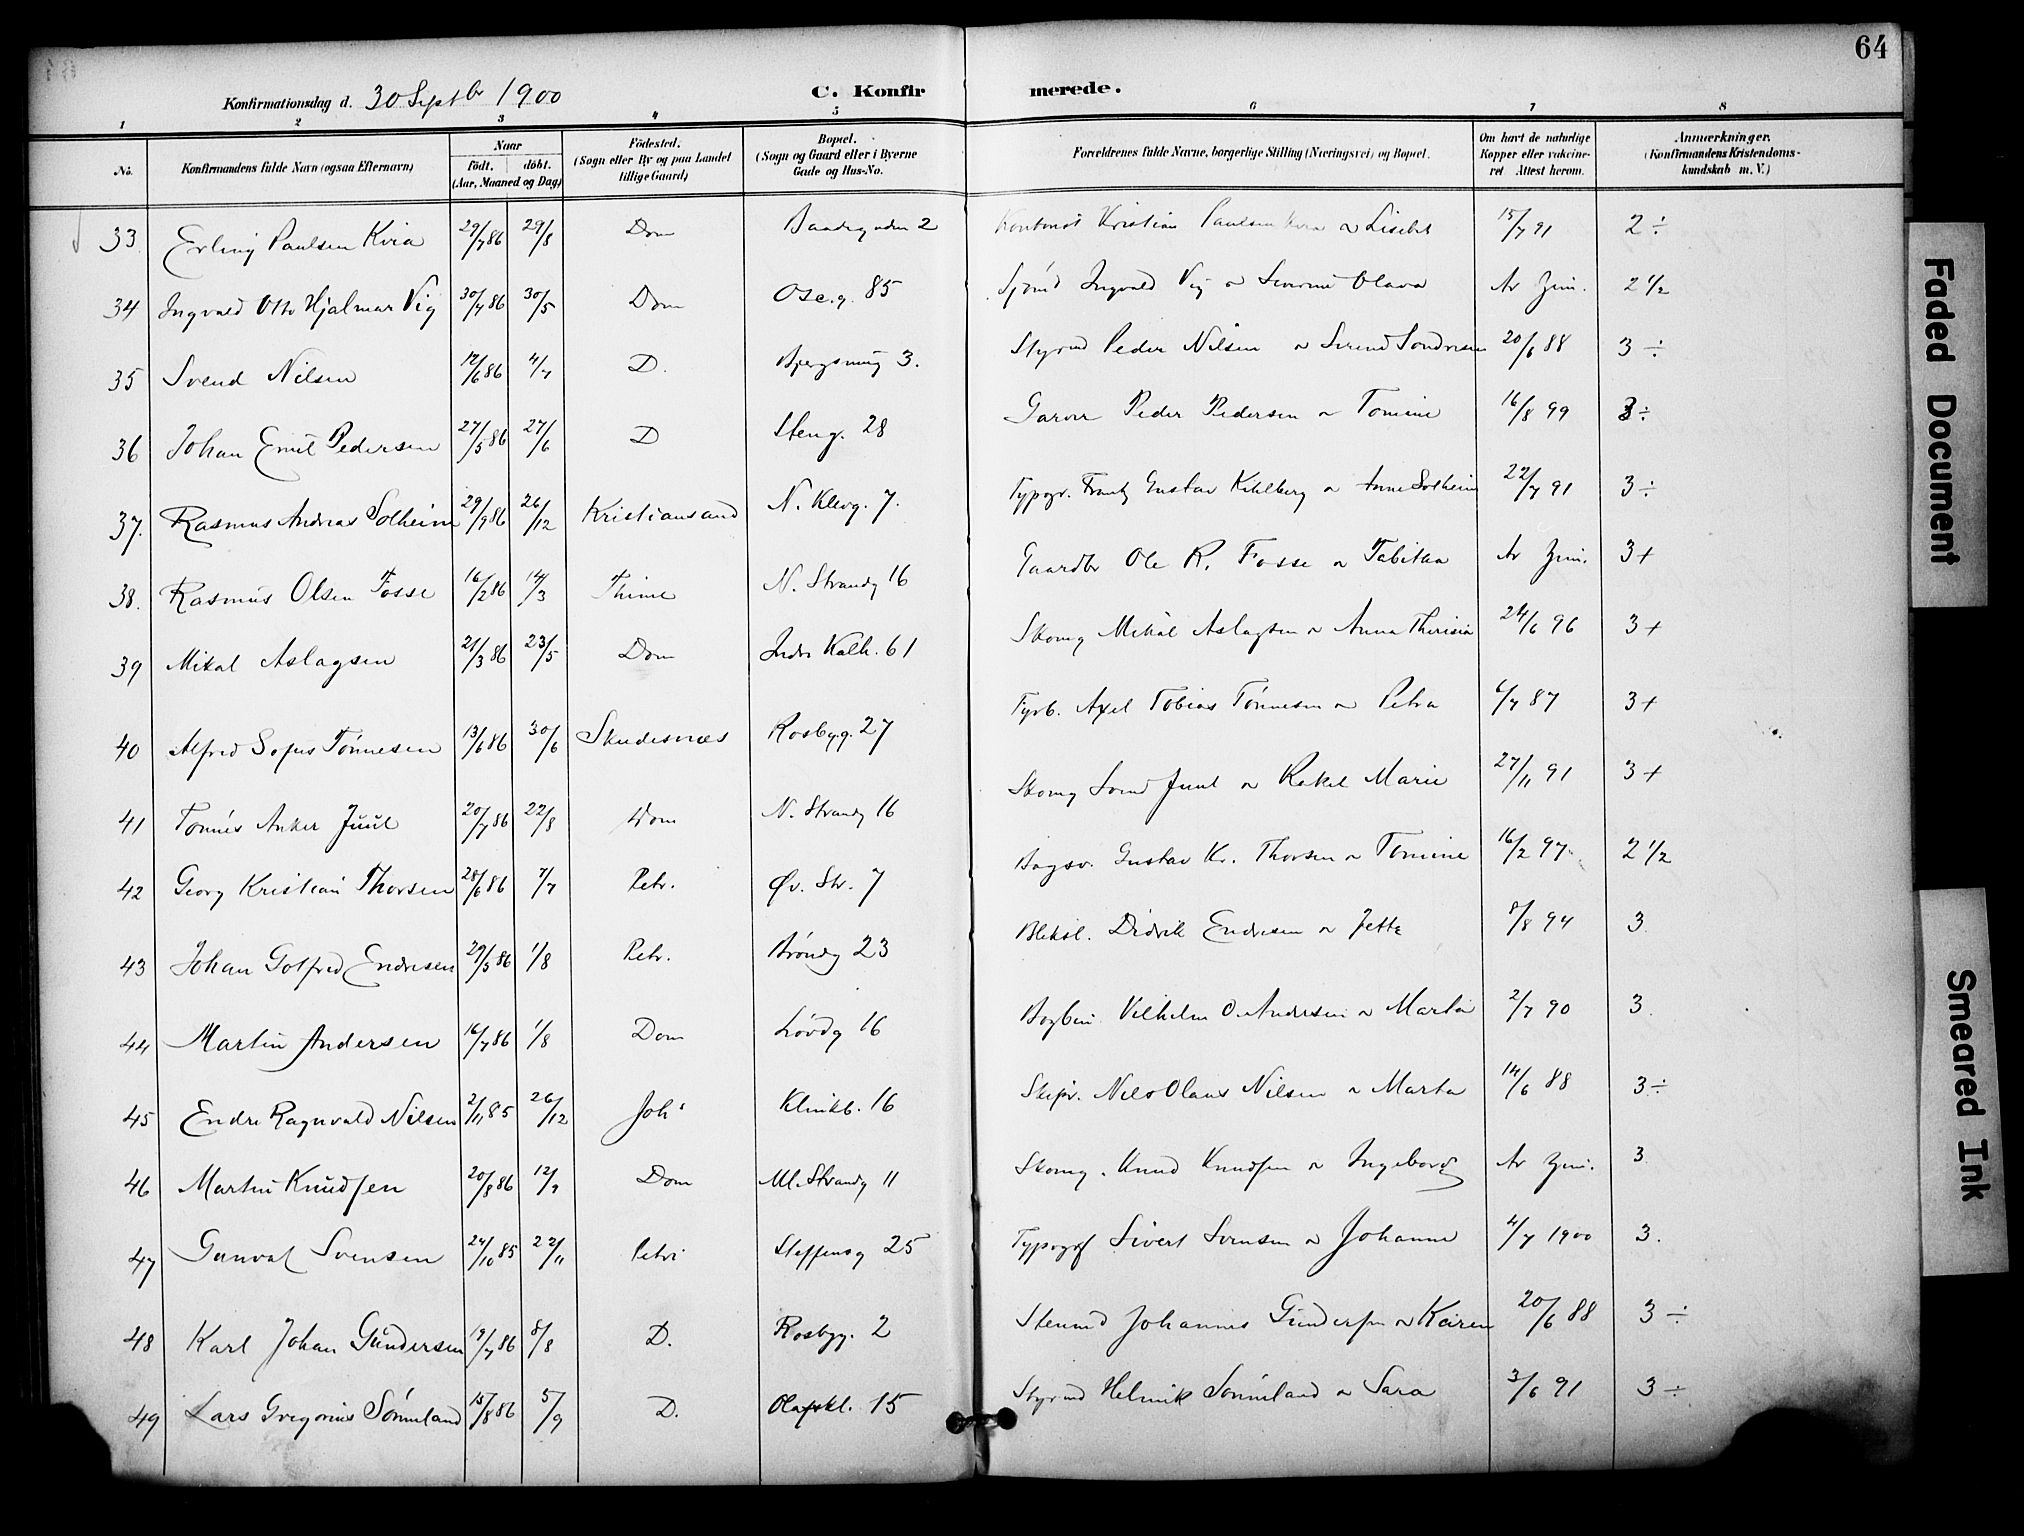 64
Konfirmationsdag d. 30 Septbr 1900 C. Konfirmerede.
1 2 3 4 5 6 7 8
No. Konfirmandens fulde Navn (ogsaa Efternavn) Naar födt. döbt. (Aar, Maaned og Dag) Födested. (Sogn eller By og paa Landet tillige Gaard) Bopæl. (Sogn og Gaard eller i Byerne Gade og Hus-No. Forældrenes fulde Navne, borgerlige Stilling (Næringsvei) og Bopæl. Om havt de naturlige Kopper eller vakcineret Attest herom. Anmærkninger. (Konfirmandens Kristendomskundskab m. V.)
33. Erling Paulsen Kvia 29/7 86 29/8 Dom 2 Kristian Paulsen Kvia o Lisebet 15/7 91 2 ÷
34 Ingvald Otto Hjalmar Vig 30/4 86 30/5 Dom Ose.g. 85 Ingvald Vig o Olava Av Zim. 2 1/2
35 Svend Nilsen 12/6 86 4/7 D. Bjergsmug 3. Styrmd Peder Nilsen o 20/6 88 3 ÷
36 Johan Emil Pedersen 27/5 86 27/6 D Steng. 28 Garver Peder Pedersen o Tomine 16/8 99 3 ÷
37. Rasmus Andreas Solheim 29/9 86 26/12 Kristiansand N. Klevg. 7. Typogr. Frantz Gustav Kihlberg o Anne Solheim 22/7 91 3 ÷
38. Rasmus Olsen Fosse 16/2 86 14/3 Thime N. Strandg 16 Gaardbr Ole R. Fosse o Tabitha Av Zim. 3 +
39 Mikal Aslagsen 21/3 86 23/5 Dom Indr Kalh. 61 Skomg Mikal Aslagsen o Anna Theresia 24/6 96 3 +
40 Alfred Sofus Tønnesen 13/6 86 30/6 Skudesnæs Rosbgg. 27 Fyrb. Axel Tobias Tønnesen o Petra 6/7 87 3 +
41 Tønnes Anker Juul 20/7 86 22/8 Dom N. Strandg 16 Skomg Svend Juul o Rakel Marie 27/11 91 3 +
42 Georg Kristian Thorsen 28/6 86 7/7 Petr. Øv. Str. 7 Bogsv. Gustav Kr. Thorsen o Tomine 16/2 97. 2 1/2
43 Johan Gotfred Endresen 29/5 86 1/8 Petr. Brøndg 23 Bliksl. Didrik Endresen o Jette 8/8 94 3
44 Martin Andersen 16/7 86 1/8 Dom Løvdg 16 Bogbin. Vilhelm O. Andersen o Marta 2/7 90 3.
45 Endre Ragnvald Nilsen 2/11 85 26/12 Joh's Klinkb. 16 Skipr. Nils Olaus Nilsen o Marta 14/6 88 3 ÷
46 Martin Knudsen 20/8 86 12/9 Dom Ml. Strandg 11 Skomg. Knud Knudsen o Ingeborg Av Zim. 3
47 Gunval Svensen 24/10 85 22/11 Petri Steffensg 25 Typogrf Sivert Svensen o Johanne 4/7 1900 3.
48 Karl Johan Gundersen 19/7 86 8/8 D. Rosbgg. 2 Stenmd Johannes Gundersen o Karen 20/6 88 3 ÷
49 Lars Gregorius Sømeland 15/8 86 5/9 D. Olafskl. 15 Styrmd Helmik Sømeland o Sara 3/6 91 3 ÷
Faded Document
Smeared Ink